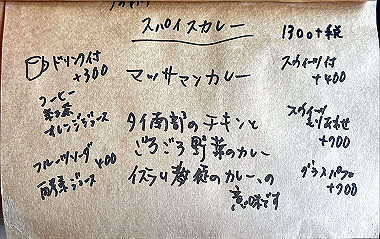 スパイスカレー
1300+税
ドリンク付
+300
コーヒー
紅茶
オレンジジュース
フルーツソーダ 400
酵素ジュース
マッサマンカレー
タイ南部のチキンと
ごろごろ野菜のカレー
イスラム教徒のカレー、の
意味です
スウィーツ付
+400
スウィーツ
もりあわせ
+700
グラスパフェ
+700